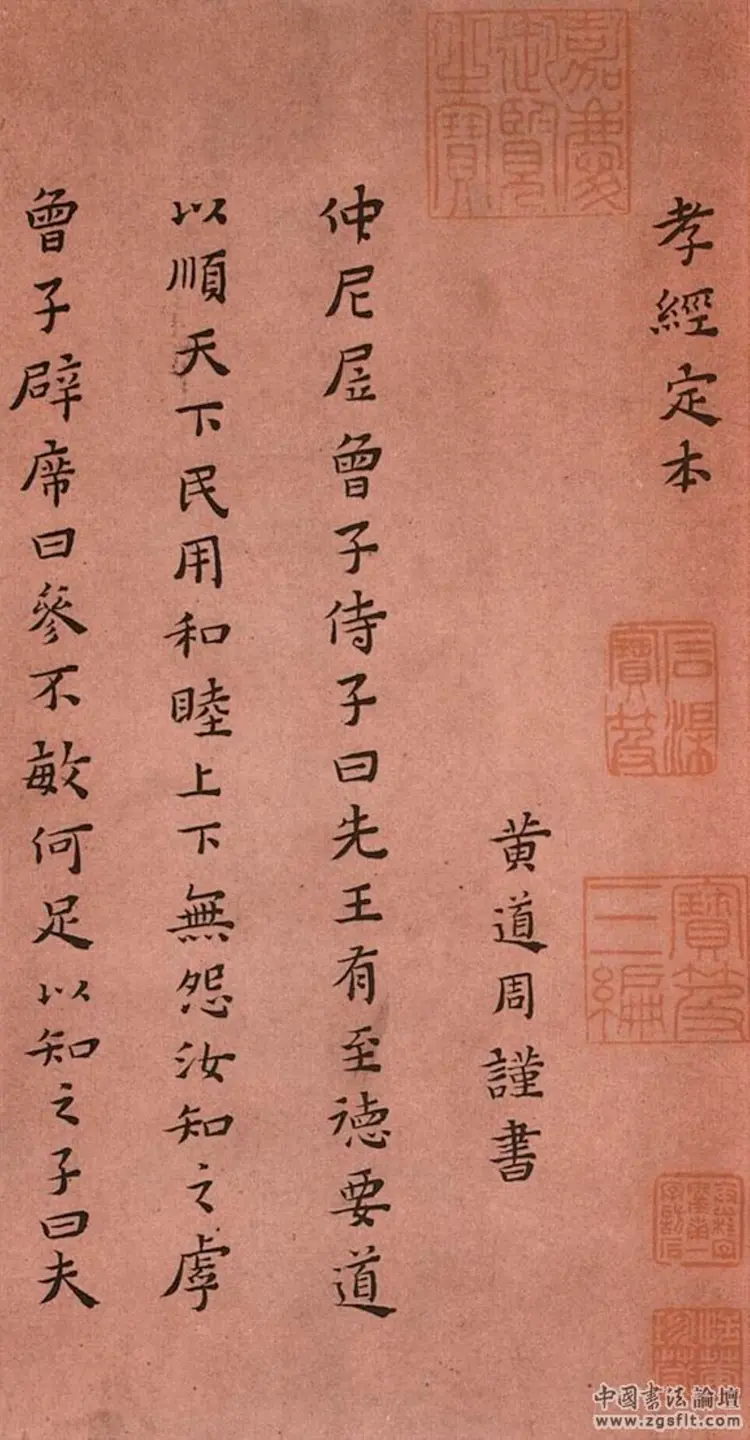 孝經定本
嘉慶御覽之寶
石渠寶笈
寶笈三編
黃道周謹書
仲尼居曾子侍子曰先王有至德要道
以順天下民用和睦上下無怨汝知之虖
曾子辟席曰參不敏何足以知之子曰夫
中國書法論壇
www.zgsflt.com